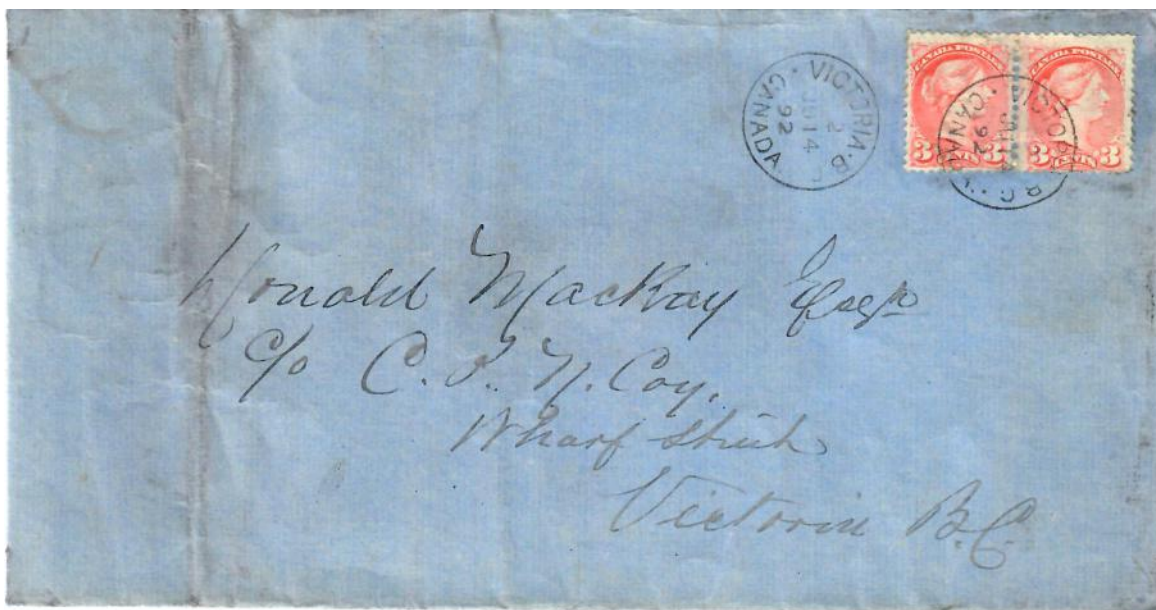 VICTORIA·B.C
2
JU 14
92
CANADA
CANADA POSTAGE
3 CENTS 3
CANADA POSTAGE
3 CENTS 3
VICTORIA B.C.
92
CANADA
Donald Mackay Esqr
c/o C. P. N. Coy,
Wharf Street
Victoria B.C.